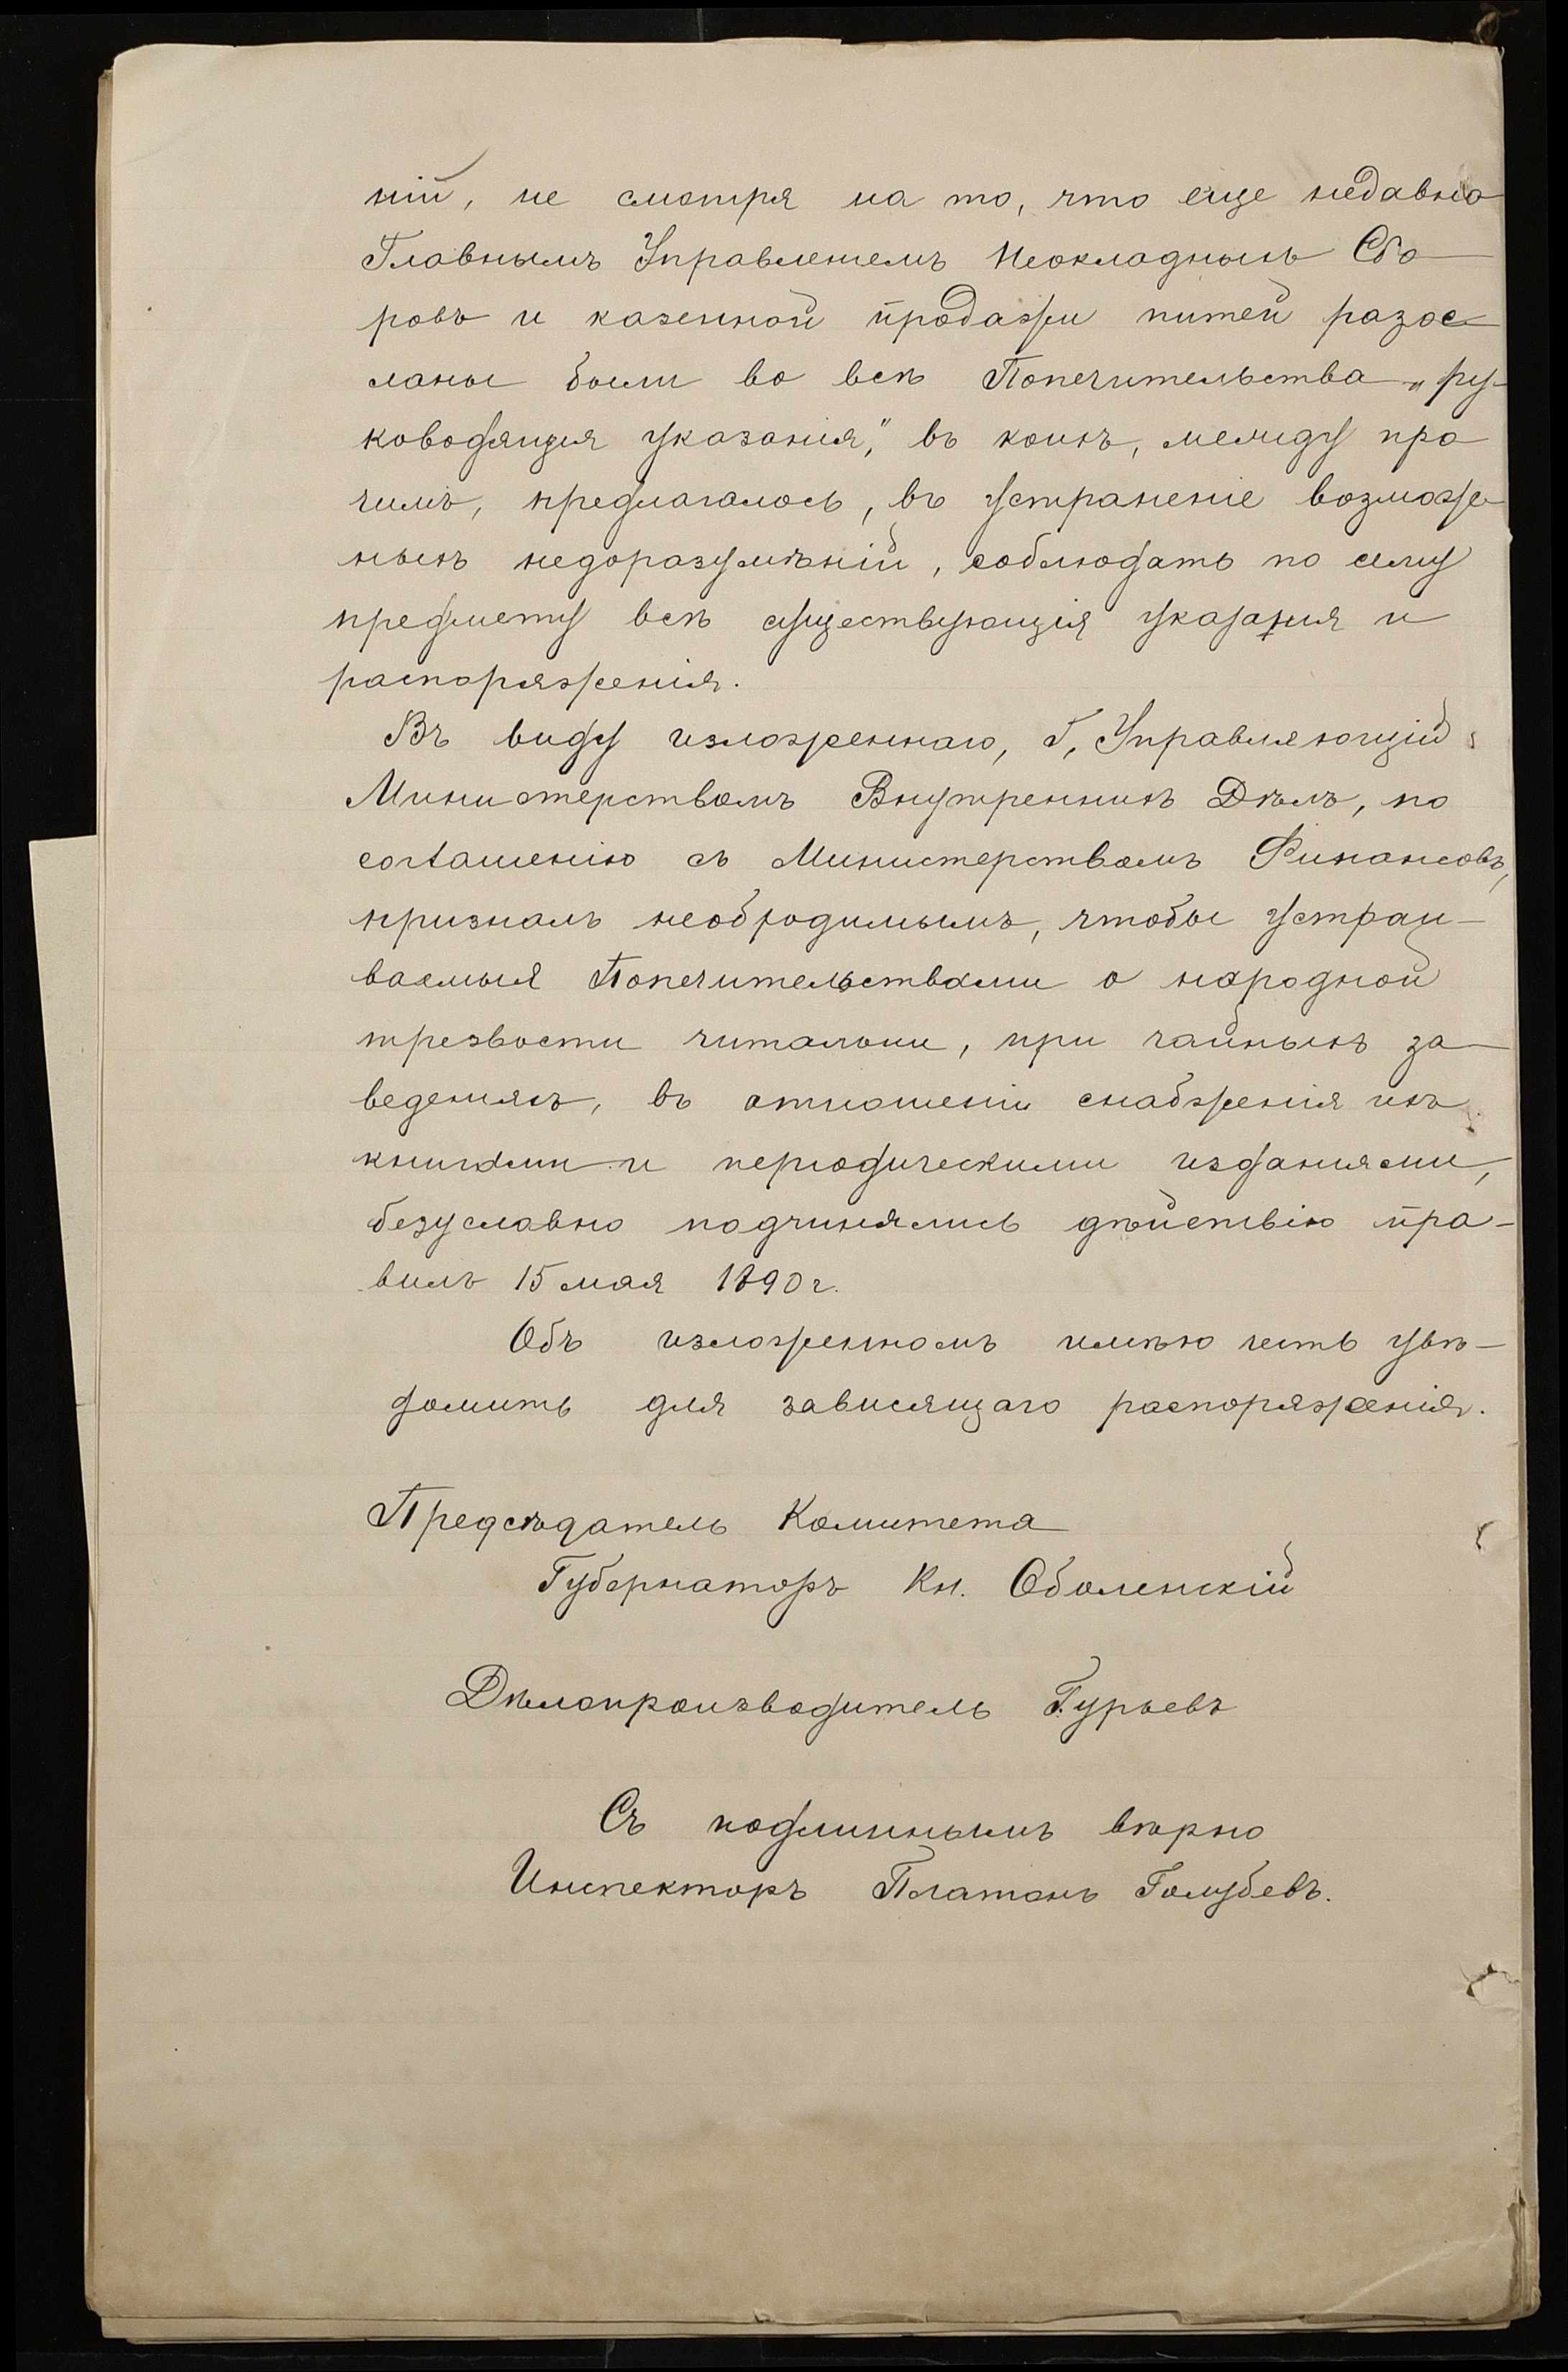 ній, не смотря на то, что еще недавно
Главнымъ Управленіемъ Неокладныхъ Сбо
ровъ и казенной продажи питей разос
ланы были во всѣ Попечительства „ру-
ководящія указанія", въ коихъ, между про
чимъ, предлагалось, въ устраненіе возмож-
ныхъ недоразумѣній, соблюдать по сему
предмету всѣ существующія указанія и
распоряженія.
Въ виду изложеннаго, Г, Управляющій
Министерствомъ Внутреннихъ Дѣлъ, по
соглашенію съ Министерствомъ Финансовъ,
призналъ необходимымъ, чтобы устраи-
ваемыя Попечительствами о народной
трезвости читальни, при чайныхъ за
веденіяхъ, въ отношеніи снабженія ихъ
книгами и періодическими изданіями,
безусловно подчинялись дѣйствію пра-
вилъ 15 мая 1890 г.
Объ изложенномъ имѣю честь увѣ-
домить для зависящаго распоряженія.
Предсѣдатель Комитета
Губернаторъ Кн. Оболенскій
Дѣлопроизводитель Гурьевъ
Съ подлиннымъ вѣрно
Инспекторъ Платонъ Голубевъ.